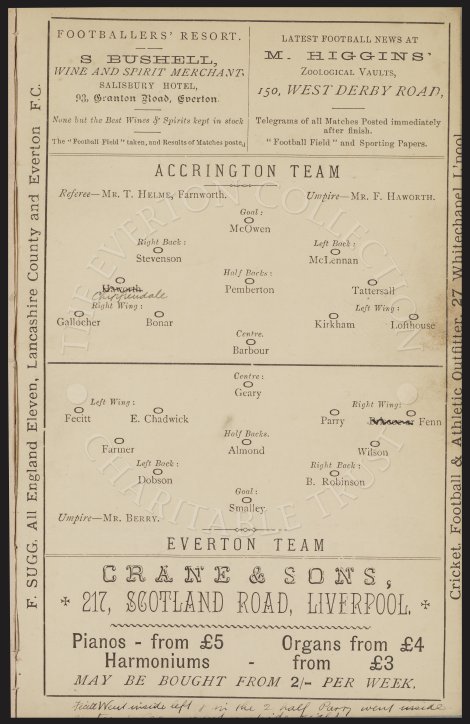 FOOTBALLERS' RESORT.
S BUSHELL,
WINE AND SPIRIT MERCHANT,
SALISBURY HOTEL,
93, Granton Road, Everton.
None but the Best Wines & Spirits kept in stock
The "Football Field" taken, and Results of Matches poste,
LATEST FOOTBALL NEWS AT
M. HIGGINS'
ZOOLOGICAL VAULTS,
150, WEST DERBY ROAD,
Telegrams of all Matches Posted immediately
after finish.
"Football Field" and Sporting Papers.
F. SUGG. All England Eleven, Lancashire County and Everton F.C.
Cricket, Football & Athletic Outfitter, 27 Whitechapel L'pool
ACCRINGTON TEAM
Referee—MR. T. HELME, Farnworth. Umpire—MR. F. HAWORTH.
Goal:
McOwen
Right Back: Left Back:
Stevenson McLennan
Half Backs:
Haworth Pemberton Tattersall
Chippendale
Right Wing: Left Wing:
Gallocher Bonar Kirkham Lofthouse
Centre.
Barbour
Centre:
Geary
Left Wing: Right Wing:
Fecitt E. Chadwick Parry Fenn
Half Backs.
Farmer Almond Wilson
Left Back: Right Back:
Dobson B. Robinson
Goal:
Smalley
Umpire—MR. BERRY.
EVERTON TEAM
CRANE & SONS,
217, SCOTLAND ROAD, LIVERPOOL.
Pianos - from £5 Organs from £4
Harmoniums - from £3
MAY BE BOUGHT FROM 2/- PER WEEK.
Fecitt Went inside left & in the 2 half Parry went inside
THE EVERTON COLLECTION
CHARITABLE TRUST